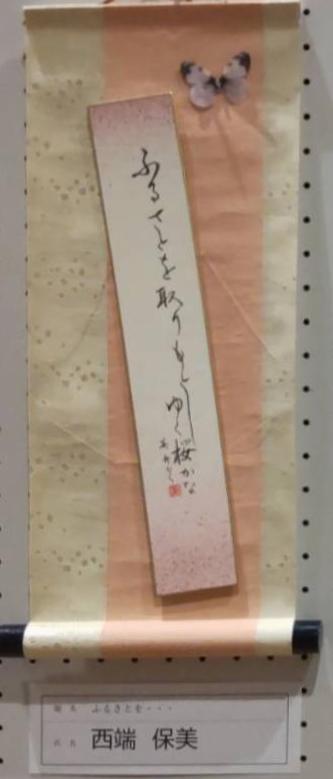 ふるさとを取りもどしゆく桜かな
題名 ふるさとを・・・
氏名 西端 保美